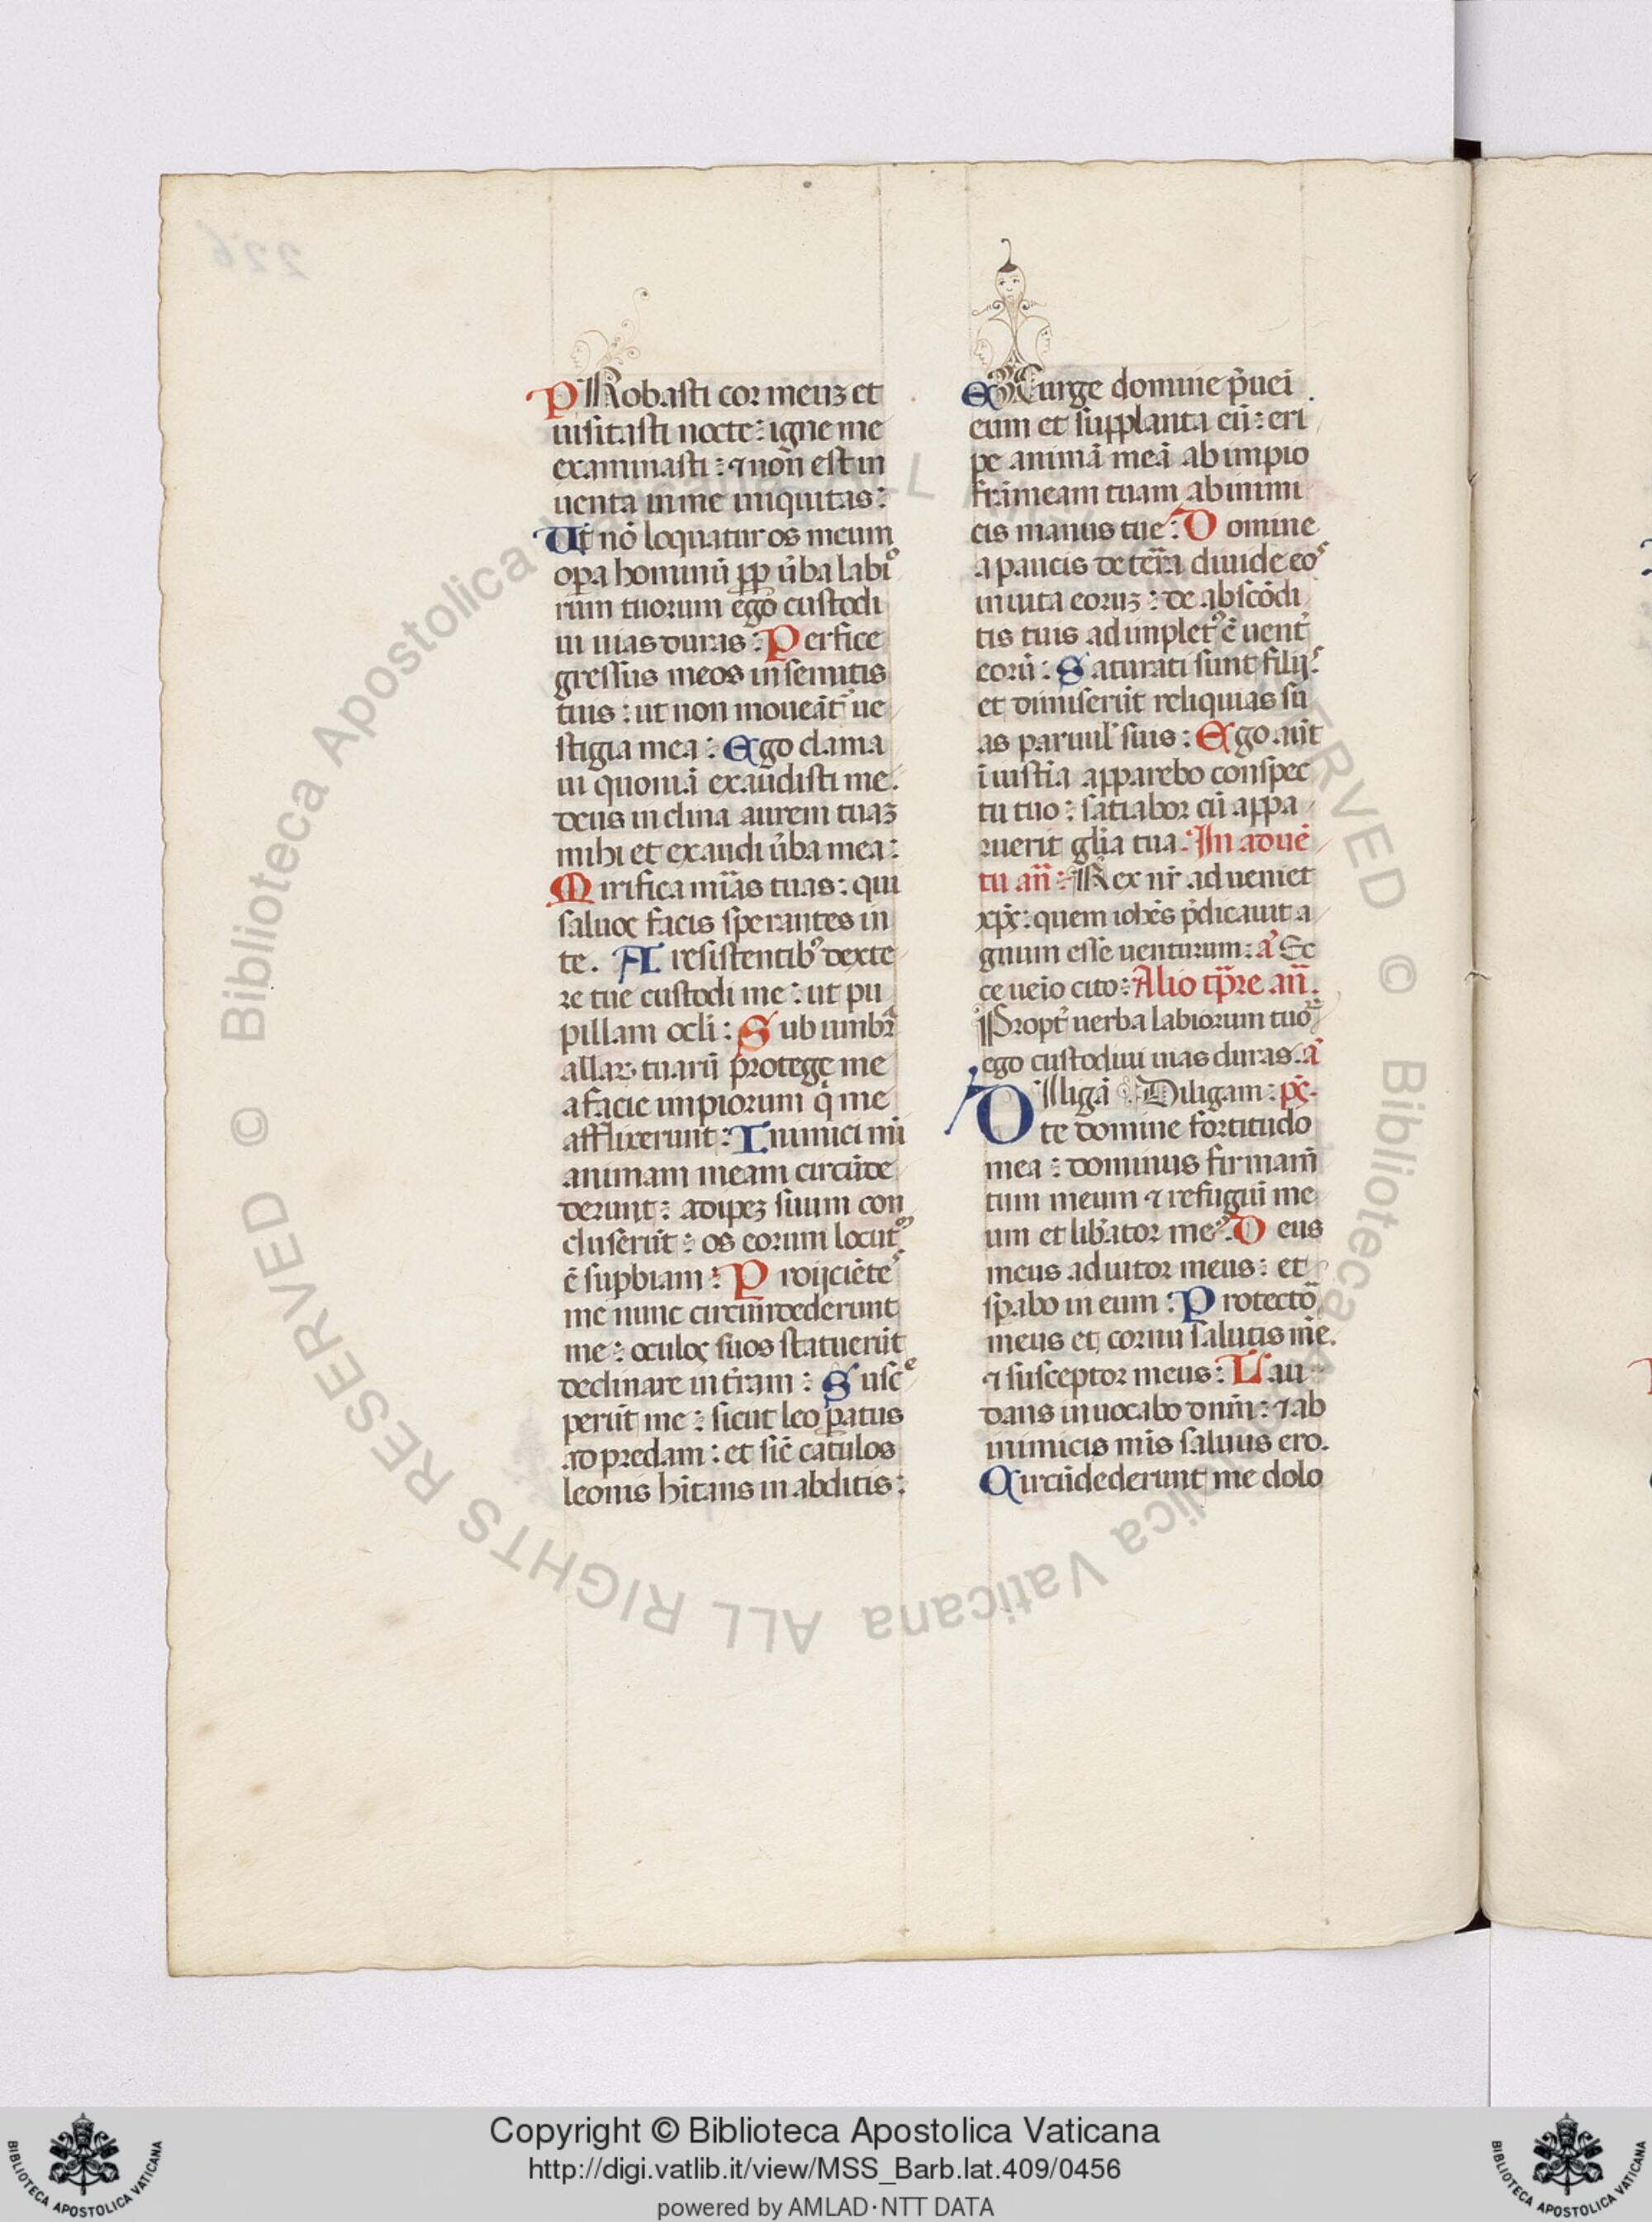 PRobasti cor meuꝫ et
uisitasti nocte: igne me
examinasti: ⁊ non est in
uenta in me iniquitas:
Ut nō loquatur os meum
oꝑa hominū ꝓp ūba labi⁹
rum tuorum ego custodi
ui uias duras: Perfice
gressus meos in semitis
tuis: ut non moueāt᷑ ue
stigia mea: Ego clama
ui quoniā exaudisti me.
deus inclina aurem tuaꝫ
mihi et exaudi ūba mea:
Mirifica mīas tuas: qui
saluos facis sperantes in
te. A resistentib⁹ dexte
re tue custodi me: ut pu
pillam ocli: Sub umbra
allaꝝ tuarū protege me
a facie impiorum q̄ me
afflixerunt: Inimici mī
animam meam circūde
derunt: adipeꝫ suum con
cluserūt: os eorum locut⁹
ē suꝑbiam: Proijciētes
me nunc circumdederunt
me: oculos suos statuerūt
declinare in tr̄am: Susce
perūt me: sicut leo ꝑatus
ad predam: et sic̄ catulos
leonis hītans in abditis:
EXurge domine p̄uei
eum et supplanta eū: eri
pe animā meā ab impio
frameam tuam ab inimi
cis manus tue: Domine
a paucis de terra diuide eos
in uita eoruꝫ: de abscōdi
tis tuis adimplet⁹ ē uent᷑
eorū: Saturati sunt filijs
et dimiserūt reliquias su
as paruul᷑ suis: Ego aūt
ī iustīa apparebo conspec
tu tuo: satiabor cū appa
ruerit gl̄ia tua. In aduē
tu an̄: Rex nr̄ adueniet
xp̄s: quem ioh̄es p̄dicauit a
gnum esse uenturum: a Ec
ce ueīo cito: Alio tp̄re an̄.
Propt᷑ uerba labiorum tuoꝝ
ego custodiui uias duras. a
DIligā Diligam: ps̄.
te domine fortitudo
mea: dominus firmam̄
tum meum ⁊ refugiū me
um et lib̄ator me⁹. Deus
meus adiutor meus: et
sꝑabo in eum: Protector
meus et cornu salutis mē.
⁊ susceptor meus: Lau
dans inuocabo dnm̄: ⁊ ab
inimicis mīs saluus ero.
Circūdederunt me dolo
Copyright © Biblioteca Apostolica Vaticana
http://digi.vatlib.it/view/MSS_Barb.lat.409/0456
powered by AMLAD·NTT DATA